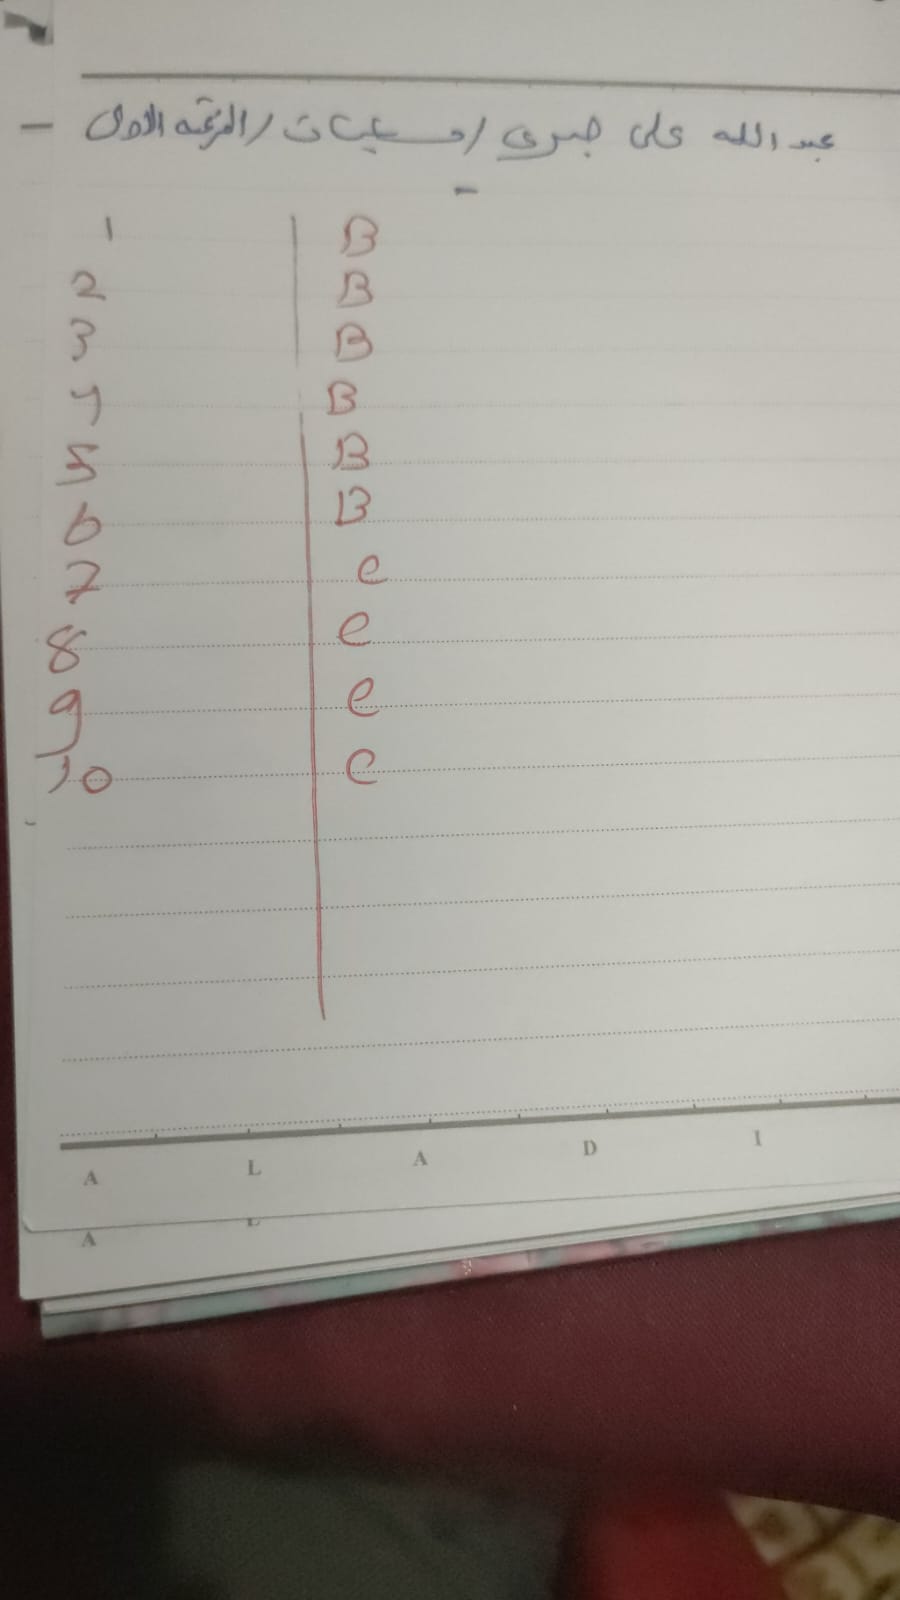 عبد الله على صبرى / حسابات / الفرقه الاولى
1 B
2 B
3 B
4 B
5 B
6 B
7 e
8 e
9 e
10 C
A L A D I
A L